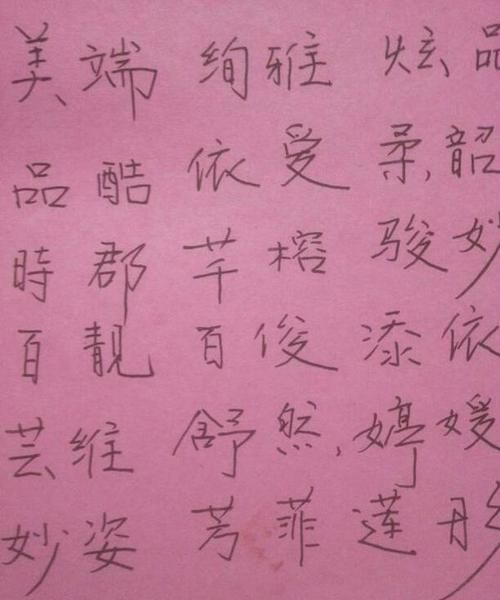 美端 绚雅 炫品
品酷 依爱 柔,韶
時郡 芊榕 骏妙
百靓 百俊 添依
芸维 舒然,婷媛
妙姿 芳菲 莲彤